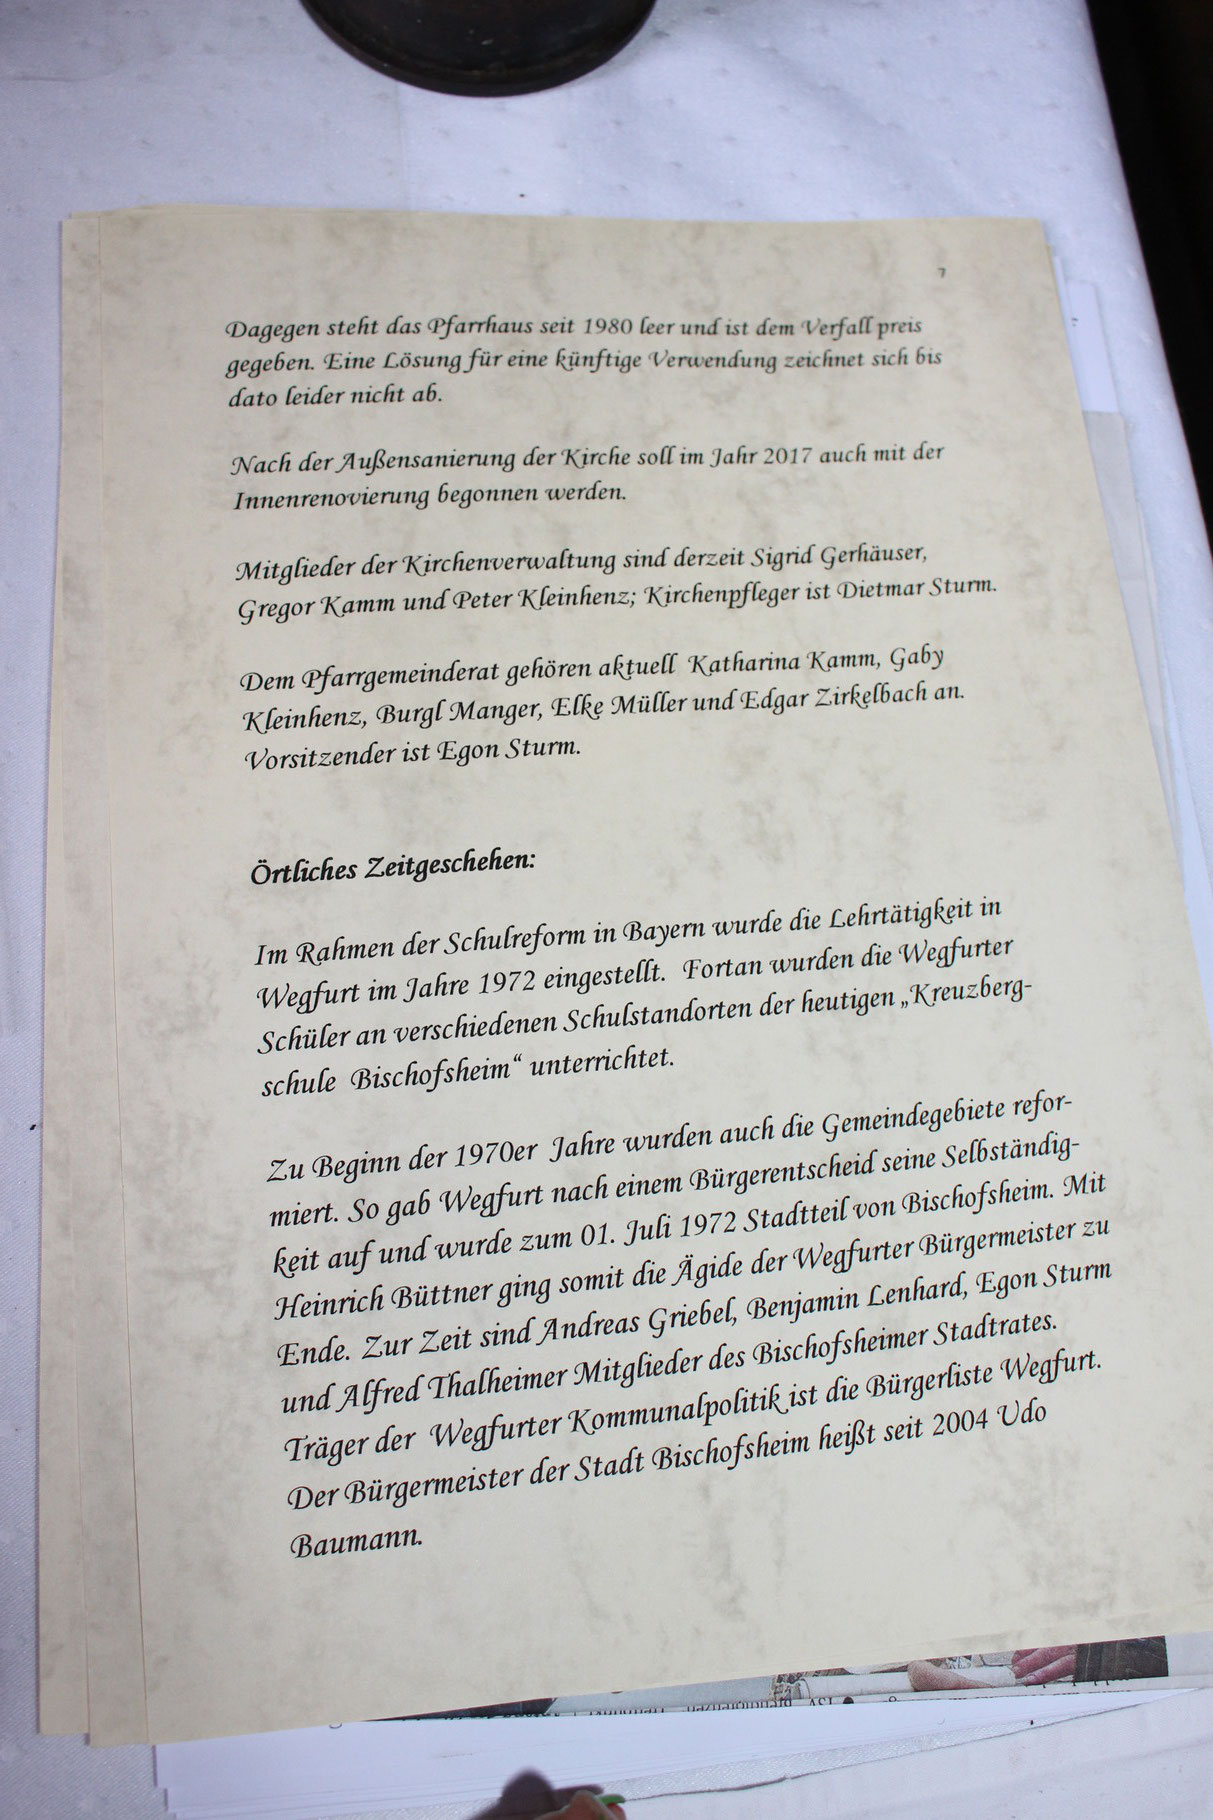 7
Dagegen steht das Pfarrhaus seit 1980 leer und ist dem Verfall preis
gegeben. Eine Lösung für eine künftige Verwendung zeichnet sich bis
dato leider nicht ab.
Nach der Außensanierung der Kirche soll im Jahr 2017 auch mit der
Innenrenovierung begonnen werden.
Mitglieder der Kirchenverwaltung sind derzeit Sigrid Gerhäuser,
Gregor Kamm und Peter Kleinhenz; Kirchenpfleger ist Dietmar Sturm.
Dem Pfarrgemeinderat gehören aktuell Katharina Kamm, Gaby
Kleinhenz, Burgl Manger, Elke Müller und Edgar Zirkelbach an.
Vorsitzender ist Egon Sturm.
Örtliches Zeitgeschehen:
Im Rahmen der Schulreform in Bayern wurde die Lehrtätigkeit in
Wegfurt im Jahre 1972 eingestellt. Fortan wurden die Wegfurter
Schüler an verschiedenen Schulstandorten der heutigen „Kreuzberg-
schule Bischofsheim“ unterrichtet.
Zu Beginn der 1970er Jahre wurden auch die Gemeindegebiete refor-
miert. So gab Wegfurt nach einem Bürgerentscheid seine Selbständig-
keit auf und wurde zum 01. Juli 1972 Stadtteil von Bischofsheim. Mit
Heinrich Büttner ging somit die Ägide der Wegfurter Bürgermeister zu
Ende. Zur Zeit sind Andreas Griebel, Benjamin Lenhard, Egon Sturm
und Alfred Thalheimer Mitglieder des Bischofsheimer Stadtrates.
Träger der Wegfurter Kommunalpolitik ist die Bürgerliste Wegfurt.
Der Bürgermeister der Stadt Bischofsheim heißt seit 2004 Udo
Baumann.